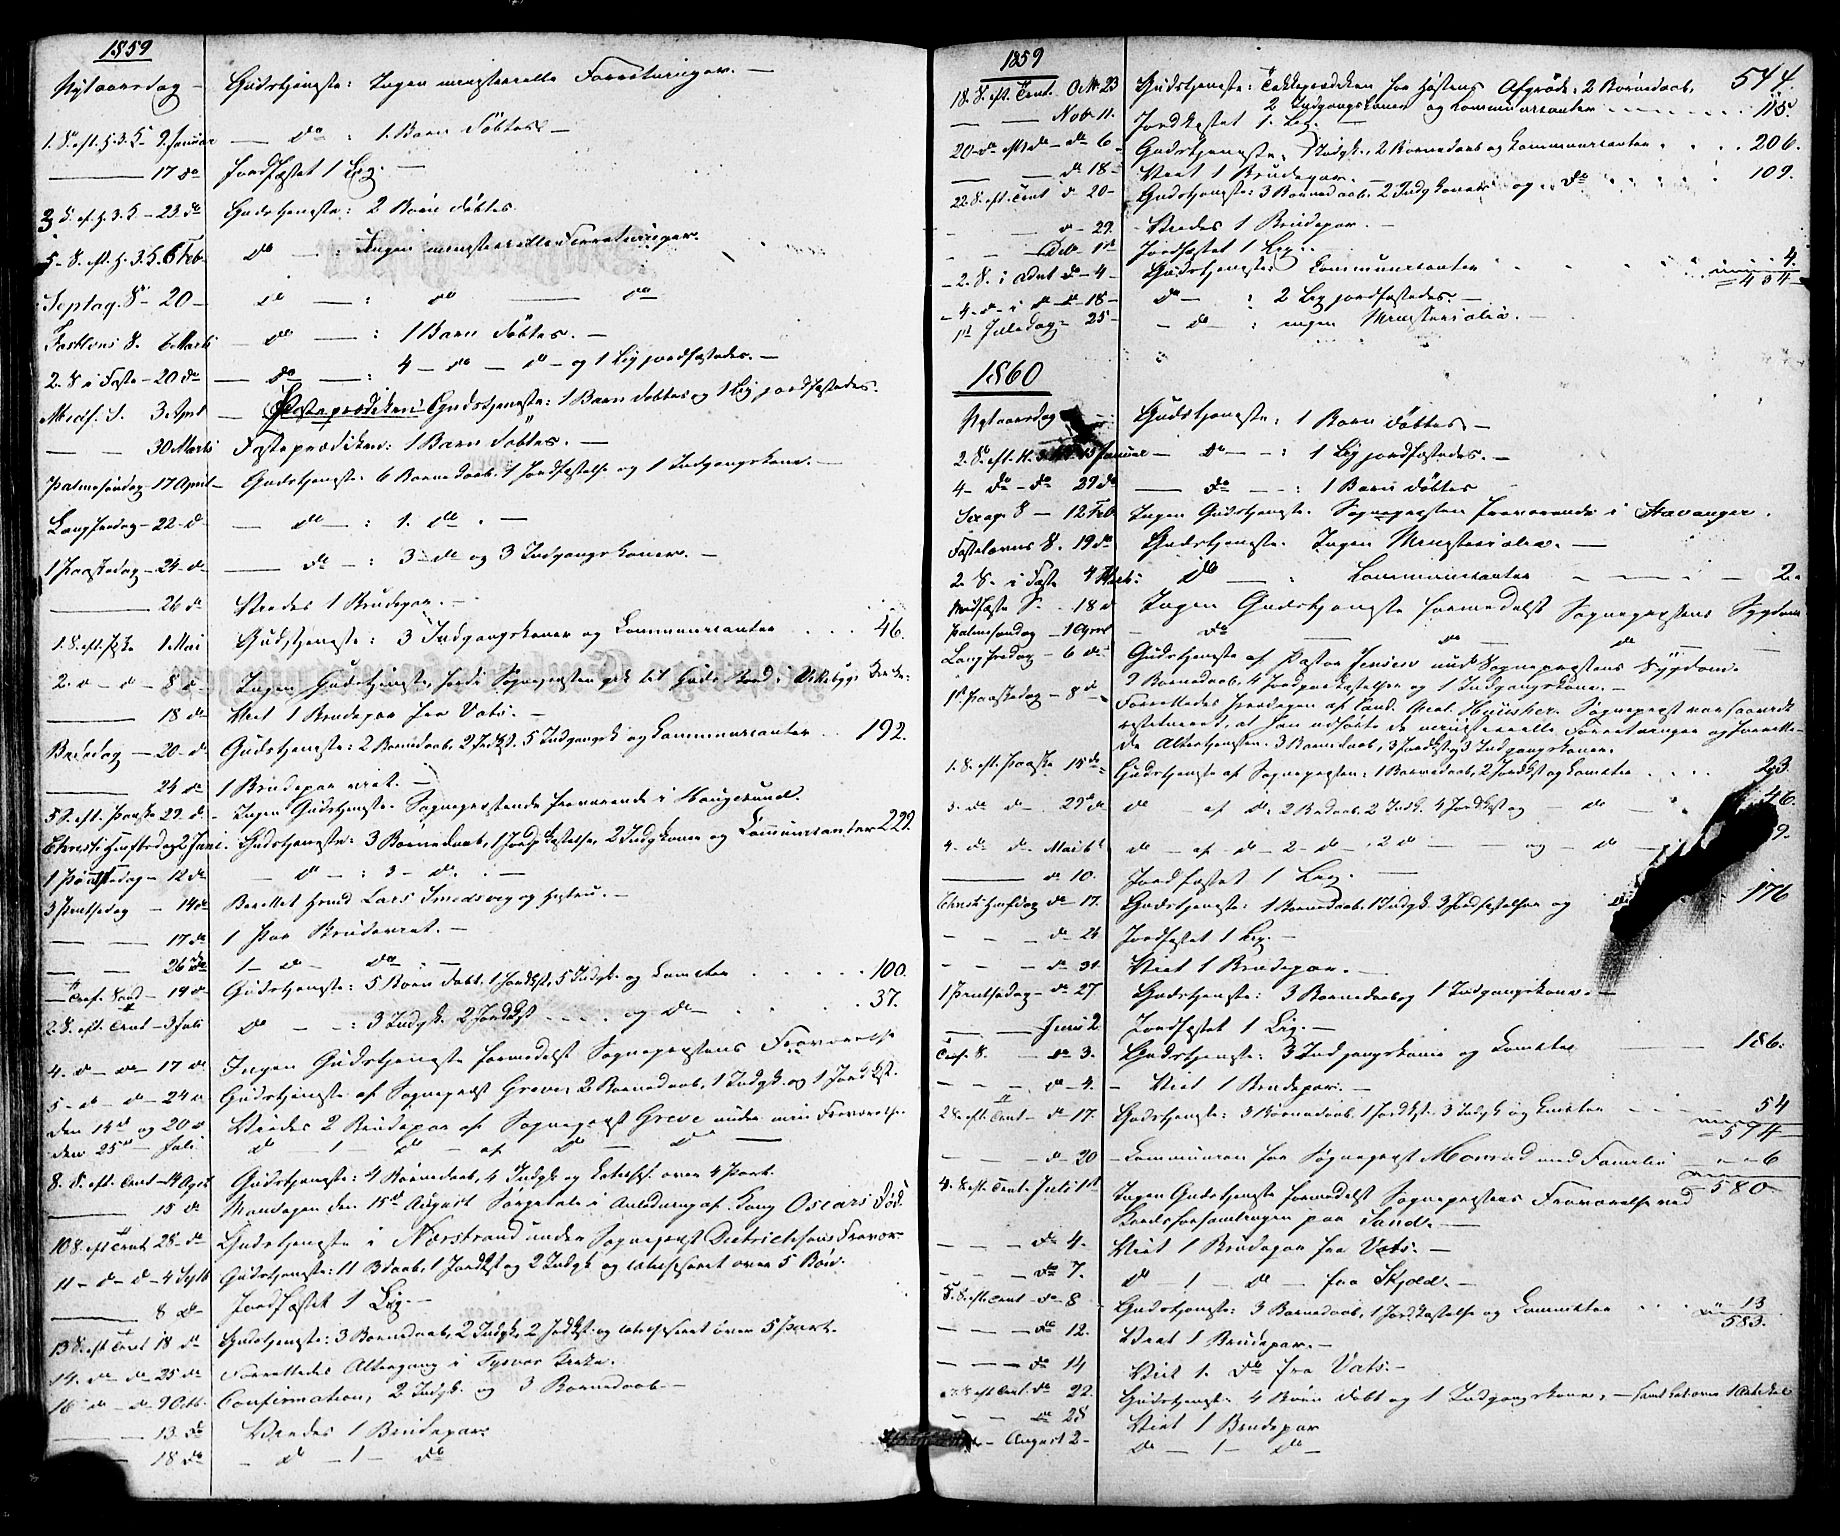 1859
Nytaarsdag — Gudstjeneste: Ingen ministerielle Forretninger. —
1. S. eft. H. 3. K — 9 Januar — do : 1 Barn døbtes —
— 17 do Jordfæstet 1 Lig. —
3 S. ef. H. 3. K — 23. do Gudstjeneste: 2 Børn døbtes.
5. S. eft. H. 3. K. 6 Feb — do — : Ingen ministerielle Forretninger.
Septag. S — 20 — do — : do — do
Fastlavns S. 6 Marts — do — : 1 Barn døbtes. —
2. S i Faste — 20 do — do — : 4 — do — d — og 1 Lig jordfæstedes. —
Midf. S. 3 April — Gudstjeneste: 1 Barn døbtes og 1 Lig jordfæstedes.
— — 30 Marts Fasteprædiken: 1 Barn døbtes. —
Palmesøndag — 17 April — Gudstjeneste: 6 Barnedaab, 1 Jordfæstelse og 1 Indgangskone. —
Langfredag — 22 — d — do — : 1. do . —
1 Paaskedag — 24 — d — do — : 3 — do og 3 Indgangskoner. —
— 26 do Viedes 1 Brudepar. —
1. S. eft. Paaske 1 Mai Gudstjeneste: 3 Indgangskoner og Communicanter . . . 46.
2. — d — d — 8 d — Ingen Gudstjeneste, fordi Sognepresten gik til Guds Bord i Vikebygs Kirke.
— 18 d — Viet 1 Brudepar fra Vats. —
Bededag — 20. d Gudstjeneste: 2 Barnedaab, 2 Jordkst. 5 Indgangsk og Communicanter . . 192.
— 24 do 1 Brudepar viet. —
5 S. eft. Paaske 29. d — Ingen Gudstjeneste. Sognepresten fraværende i Haugesund.
Christi Himfartsdag 2 Juni. Gudstjeneste: 3 Børnedaab, 1 Jordpaakastelse, 2 Indgkoner og Communicanter 229.
1 Pintsedag — 12 do — d — : 3 — d. : —
3 Pintsedag — 14 do Berettet Lars Smedsvig og Hustru. —
— — 17 do 1 Par Brudeviet. —
— — 26 do 1 — d — do . —
Tref. Sønd — 19 d — Gudstjeneste: 5 Børn døbt, 1 Jordkst, 5 Indgk. og Comcter . . . . . 100.
2. S. eft. Tref — 3 Juli do — — : 3 Indgk. 2 Jordkst — . . . og d — . . . 37.
4. d — d — 17 d Ingen Gudstjeneste formedelst Sogneprestens Fraværelse
5 — d — d — 24 d Gudstjeneste af Sogneprest Greve; 2 Barnedaab, 1 Indgk. og 1 Jordkst.
den 14de og 20 d Viedes 2 Brudepar af Sogneprest Greve under min Fraværelse
den 25de Juli d — 1 — d — af d — d —
8. S. eft. Tref — 14 Augst Gudstjeneste: 4 Børnedaab, 4 Indgk og Catechs. over 4 Part.
— 15 do Mandagen den 15de August Sørgetale i Anledning af Kong Oscars Død.
10 S. eft Tref 28 — do Gudstjeneste i Nærstrand under Sogneprest Dietrichsons Fravær.
11 — d — d — 4 Septb Gudstjeneste: 11 Bdaab, 1 Jordkst og 2 Indgk og catechiseret over 5 Bud.
— 8 do — Jordfæstet 1 Lig. —
13 S. eft Tref 18 do Gudstjeneste: 3 Barnedaab, 2 Indgk, 2 Jordkst. og catechiseret over 5 Part.
14. do — do 25 do Forrettedes Altergang i Tysvær Kirke.
16 d — d — 9 Octb. Confirmation, 2 Indgk. og 3 Barnedaab. —
— 13. do Viedes 1 Brudepar.
— 18 do — d — 1 — do
1859
18. S. eft. Tref. Octb 23 Gudstjeneste: Takkeprædiken for Høstens Afgrøde: 2 Børnedaab, 544.
2 Indgangskoner og Communicanter — — — — 115.
— — Nov 11. Jordkastet 1. Lig. —
20 — do eft do — do 6 — Gudstjeneste: 1 Indgk, 2 Barnedaab og Communicanter . . . . . 206.
— — do 18 — Viet 1 Brudepar. —
22 S. eft. Tref d 20 — Gudstjeneste: 3 Barnedaab, 2 Indgkoner og do . . . . . . 109.
— — d — 29. Viedes 1 Brudepar. —
— — Deb 1ste Jordfæstet 1 Lig.
— 2. S. i Advt do — 4 — Gudstjeneste: Communicanter . . . . . 4.
434
— 4 — d — i do do — 18 — do — : 2 Lig jordfæstedes. —
1st Juledag — 25 — — do — : ingen Ministerialia. —
1860
Nytaarsdag Gudstjeneste: 1 Barn døbtes. —
2. S. eft. H. 3 K. 15 Januar — do — — : 1 Lig jordfæstedes. —
4 — do — do 29 do — do — — : 1 Barn døbtes
Sexag. S — 12 Feb Ingen Gudstjeneste. Sognepresten fraværende i Stavanger.
Fastelavns S. 19 do Gudstjeneste. Ingen Ministerialia. —
2. S. i Faste 4 Marts: do — : Communicanter — — — — 2.
Midfaste S. — 18 d Ingen Gudstjeneste formedelst Sogneprestens Sygdom
Palmesøndag — 1 April — do — do — do —
Langfredag — 6 do — Gudstjeneste af Pastor Jensen und. Sogneprestens Sygdom.
2 Barnedaab, 4 Jordpaakastelser og 1 Indgangskone. —
1st Paaskedag — 8 d — Forrettedes Prædiken af Cand. theol. Sognepræst var saavidt
restitueret, at han udførte de ministerielle Forretninger og forrette-
de Altertjenesten. 3 Barnedaab, 3 Jordkst og 3 Indgangskoner.
1. S. eft. Paaske 15 do — Gudstjeneste af Sognepresten: 1 Barnedaab, 2 Jordkst og Comcter . . . . 23.
3. do do — 29 do do af do: 2 Bdaab, 2 Indgk. 4 Jordkst og — do — . 46.
4. do do. Mai 6t do — af — d — 2 — d — , 2 do — — og — do —
— do 10. Jordfæstet 1 Lig. —
Christi Himfdag do 17. Gudstjeneste: 1 Barnedaab, 1 Indgk. 3 Jordfæstelser og 176
— — — do 24 Jordfæstet 1 Lig. —
— — — do 31 Viet 1 Brudepar. —
1 Pintsedag — do 27 Gudstjeneste: 3 Barnedaab og 1 Indgangskone. —
— — Juni 2 Jordfæstet 1 Lig. —
Tref. S. — do 3. Gudstjeneste: 3 Indgangskoner og Comcter — — 186.
— — — do — 4. — Viet 1 Brudepar. —
2 S. eft. Tref — do — 17. Gudstjeneste: 3 Børnedaab, 1 Jordkst. 3 Indgk og Comcter — — 54
574
— — — do 20 — Communion for Sogneprest Monrad med Familie — — 6
580
4. S. eft. Tref. Juli 1st Ingen Gudstjeneste formedelst Sogneprestens Fraværelse ved
Kredsforsamlingen paa Sand. —
— — — do 4. Viet 1 Brudepar fra Vats. —
— — — do 7. do — 1 — do — fra Skjold. —
5. S. eft Tref — do — 8 Gudstjeneste: 3 Barnedaab, 1 Jordkastelse og Communicter . . . 13
583.
— — — do 12. Viet 1 Brudepar. —
— — — do 14 Viet 1. do fra Vats. —
7 S. eft Tref. do 22. Gudstjeneste: 4 Børn døbt og 1 Indgangskone, —
— — do 28 Viet 1 Brudepar
— August 2 — do — 1 — do —